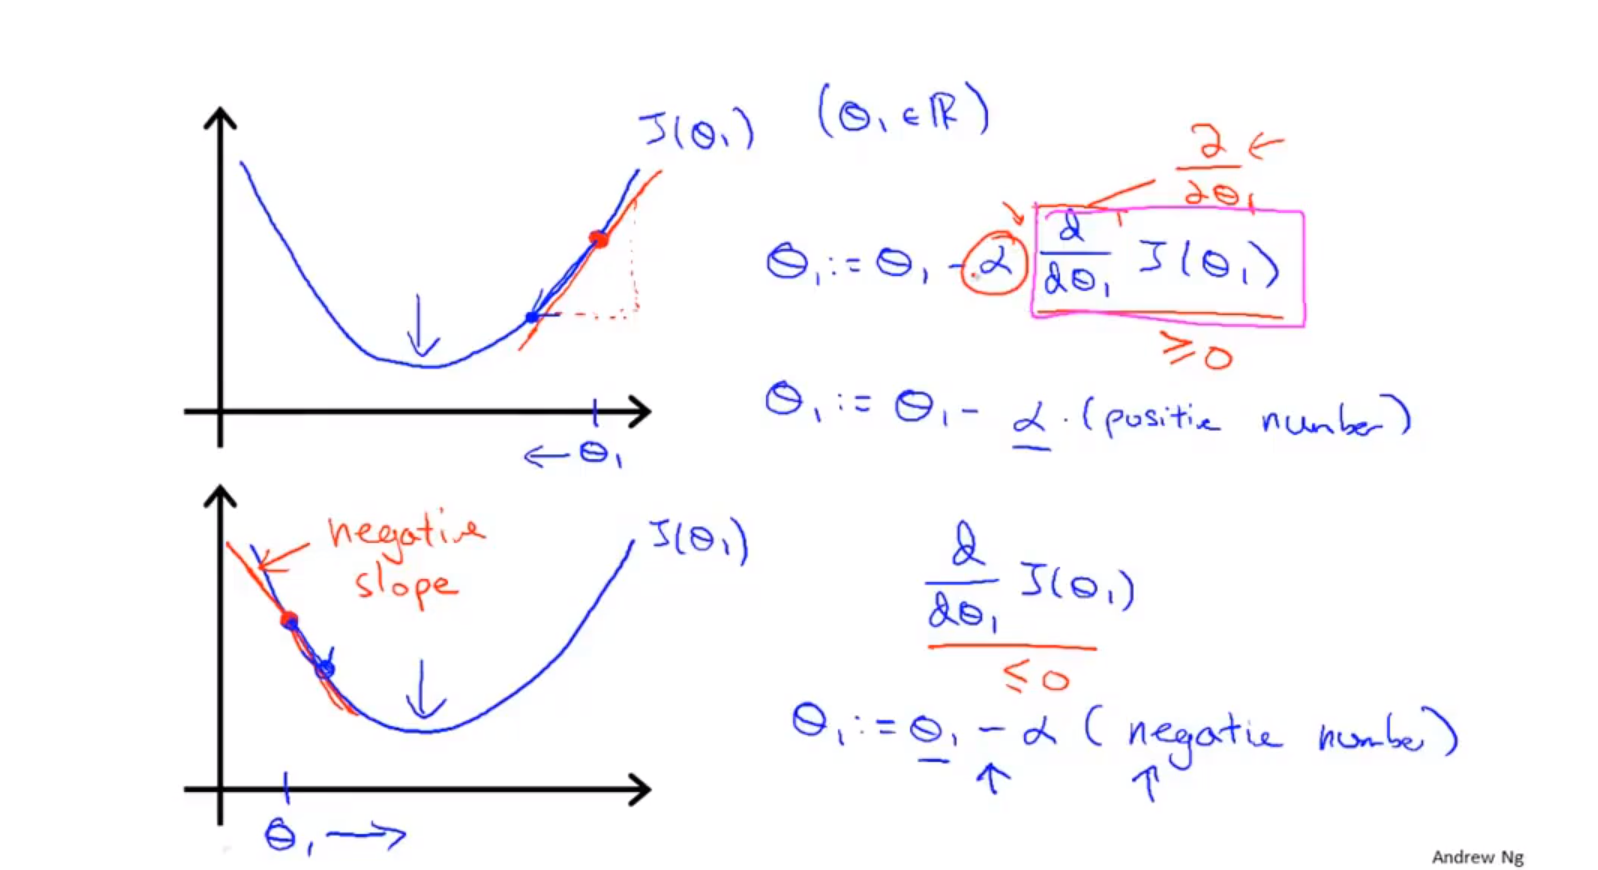 J(θ₁) (θ₁ ∈ ℝ)
∂/∂θ₁ ←
θ₁ := θ₁ - α d/dθ₁ J(θ₁)
≥ 0
θ₁ := θ₁ - α · (positive number)
← θ₁
negative slope
J(θ₁)
d/dθ₁ J(θ₁)
≤ 0
θ₁ := θ₁ - α (negative number)
θ₁ →
Andrew Ng